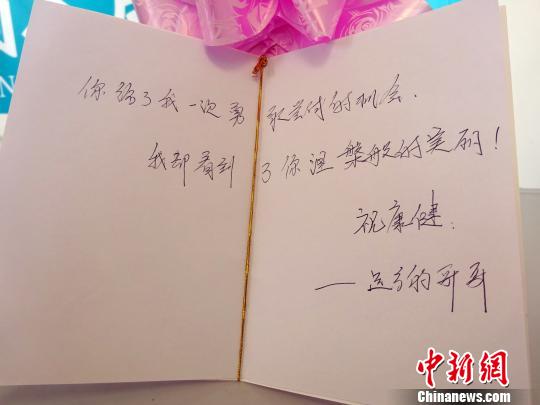 你给了我一次勇敢尝试的机会.
我却看到了你涅槃般的美丽!
祝康健.
——远方的哥哥
中新网
Chinanews.com